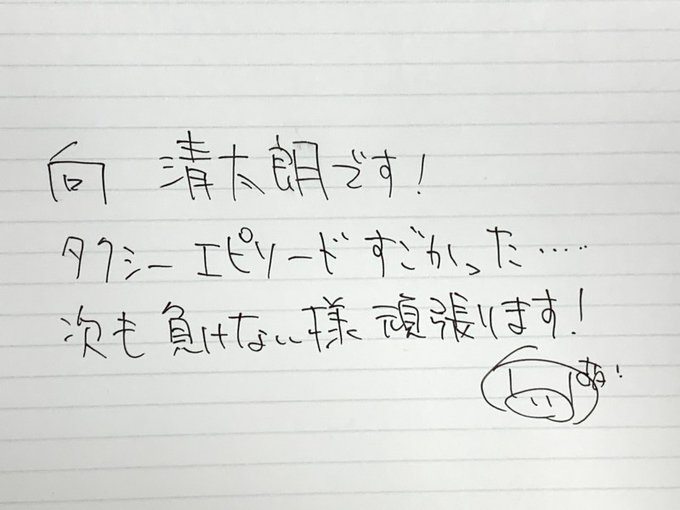 向 清太朗です!
タクシーエピソードすごかった……
次も負けない様頑張ります!